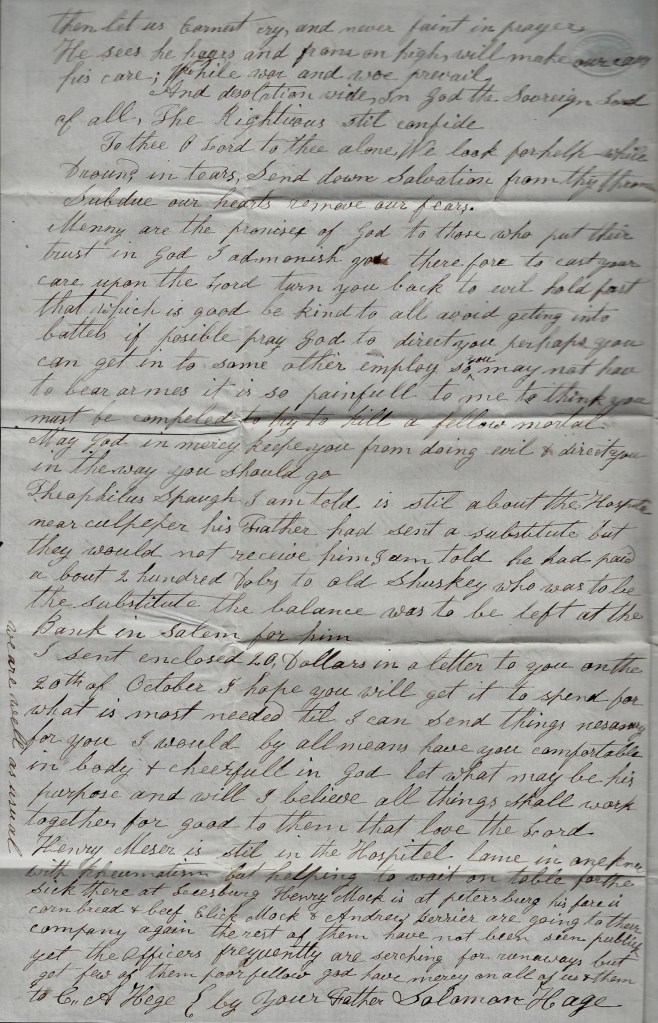 then let us Earnest cry, and never faint in prayer
He sees he hears and from on high, will make our cause
his care; While war and woe prevail
And desolation wide, in God the Sovereign Lord
of all, The Rightious stil confide
To thee O Lord to thee alone, We look for help while
Dround in tears, Send down Salvation from thy throne
Subdue our hearts remove our fears.
Menny are the promises of God to those who put their
trust in God I admonish you there fore to cast your
care upon the Lord turn you back to evil hold fast
that which is good be kind to all avoid geting into
battels if posible pray God to direct you perhaps you
can get in to some other employ so you may not hav
to bear armes it is so painfull to me to think you
must be compeled to try to kill a fellow mortal
May God in mercy keepe you from doing evil & direct you
in the way you should go
Theophilus Spaugh I am told is stil about the Hospitel
near culpeper his Father had sent a substitute but
they would not receive him I am told he had paid
a bout 2 hundred Dolrs to old Shuskey who was to be
the substitute the balance was to be left at the
Bank in Salem for him
I sent enclosed 20, Dollars in a letter to you on the
20th of October I hope you will get it to spend for
what is most needed til I can send things nesarry
for you I would by all means have you comfortable
in body & cheerfull in God let what may be his
purpose and will I believe all things shall work
together for good to them that love the Lord
Henry Meser is stil in the Hospitel lame in one knee
with Rheumatism but helping to wait on table for the
sick there at Leesburg Henry Mock is at petersburg his fare is
corn bread & beef Elick Mock & Andrew Serrier are going to their
company again the rest of them have not been seen publick
yet the officers frequently are serching for runaways but
got few of them poor fellow god have mercy on all of us & them
to C, A Hege { by Your Father Solomon Hage
we are well as usual